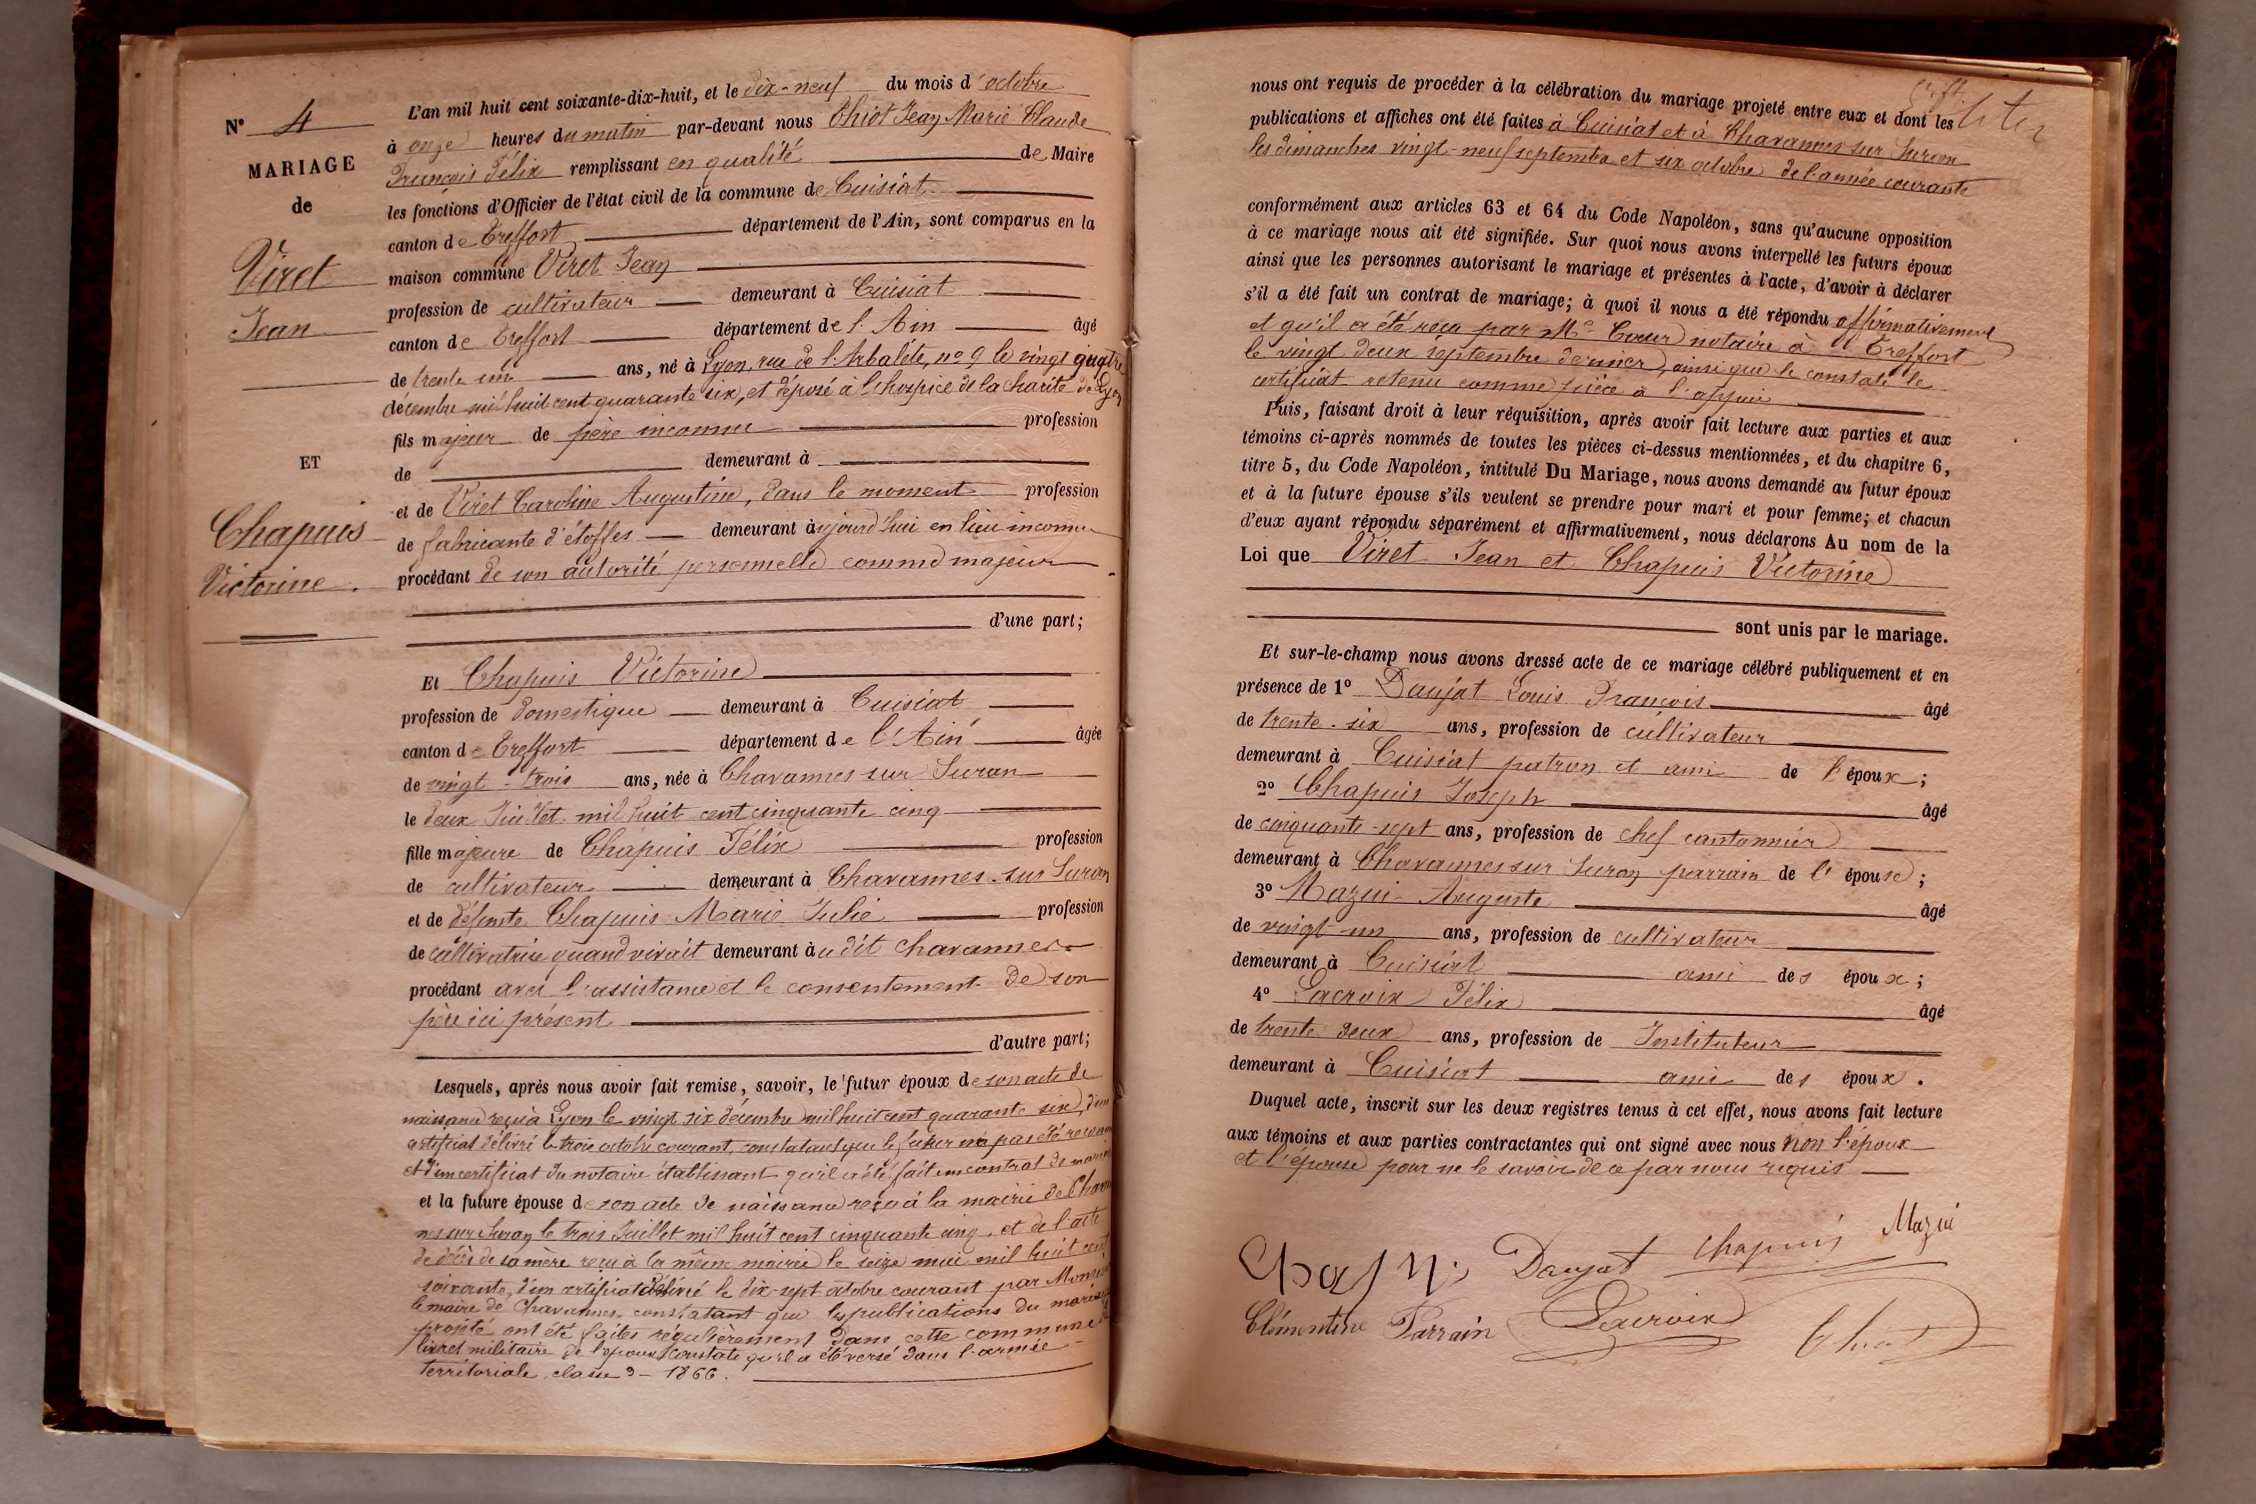 N° 4
MARIAGE
de
Viret
Jean
ET
Chapuis
Victorine.
L'an mil huit cent soixante-dix-huit, et le dix-neuf du mois d'octobre
à onze heures du matin par-devant nous Chiot Jean Marie Claude
François Félix remplissant en qualité de Maire
les fonctions d'Officier de l'état civil de la commune de Cuisiat
canton de Treffort département de l'Ain, sont comparus en la
maison commune Viret Jean
profession de cultivateur demeurant à Cuisiat
canton de Treffort département de l'Ain âgé
de trente un ans, né à Lyon, rue de l'Arbalète, n° 9 le vingt quatre
décembre mil huit cent quarante six, et déposé à l'hospice de la charité de Lyon
fils majeur de père inconnu profession
de demeurant à
et de Viret Caroline Augustine, dans le moment profession
de fabricante d'étoffes demeurant aujourd'hui en lieu inconnu
procédant de son autorité personnelle comme majeur
d'une part;
Et Chapuis Victorine
profession de domestique demeurant à Cuisiat
canton de Treffort département de l'Ain âgée
de vingt-trois ans, née à Chavannes sur Suran
le deux Juillet mil huit cent cinquante cinq
fille majeure de Chapuis Félix profession
de cultivateur demeurant à Chavannes-sur Suran
et de défunte Chapuis Marie Julie profession
de cultivatrice quand vivait demeurant au dit Chavannes
procédant avec l'assistance et le consentement de son
père ici présent
d'autre part;
Lesquels, après nous avoir fait remise, savoir, le futur époux de son acte de
naissance reçu à Lyon le vingt six décembre mil huit cent quarante six, d'un
certificat délivré le trois octobre courant, constatant que le futur n'a pas été reconnu
et d'un certificat du notaire établissant qu'il a été fait un contrat de mariage
et la future épouse de son acte de naissance reçu à la mairie de Chavan
nes sur Suran le trois Juillet mil huit cent cinquante cinq, et de l'acte
de décès de sa mère reçu à la même mairie le seize mai mil huit cent
soixante, d'un certificat délivré le dix-sept octobre courant par Monsieur
le maire de Chavannes constatant que les publications du mariage
projeté ont été faites régulièrement dans cette commune
livret militaire de l'époux constate qu'il a été versé dans l'armée
territoriale, classe 1866.
nous ont requis de procéder à la célébration du mariage projeté entre eux et dont les
publications et affiches ont été faites à Cuisiat et à Chavannes sur Suran
les dimanches vingt-neuf septembre et six octobre de l'année courante
conformément aux articles 63 et 64 du Code Napoléon, sans qu'aucune opposition
à ce mariage nous ait été signifiée. Sur quoi nous avons interpellé les futurs époux
ainsi que les personnes autorisant le mariage et présentes à l'acte, d'avoir à déclarer
s'il a été fait un contrat de mariage; à quoi il nous a été répondu affirmativement
et qu'il a été reçu par Me Cœur notaire à Treffort
le vingt deux septembre dernier, ainsi que le constate le
certificat retenu comme pièce à l'appui
Puis, faisant droit à leur réquisition, après avoir fait lecture aux parties et aux
témoins ci-après nommés de toutes les pièces ci-dessus mentionnées, et du chapitre 6,
titre 5, du Code Napoléon, intitulé Du Mariage, nous avons demandé au futur époux
et à la future épouse s'ils veulent se prendre pour mari et pour femme; et chacun
d'eux ayant répondu séparément et affirmativement, nous déclarons Au nom de la
Loi que Viret Jean et Chapuis Victorine
sont unis par le mariage.
Et sur-le-champ nous avons dressé acte de ce mariage célébré publiquement et en
présence de 1° Daujat Louis François âgé
de trente-six ans, profession de cultivateur
demeurant à Cuisiat patron et ami de l'époux;
2° Chapuis Joseph âgé
de cinquante-sept ans, profession de chef cantonnier
demeurant à Chavannes sur Suran parrain de l'épouse;
3° Mazui Auguste âgé
de vingt un ans, profession de cultivateur
demeurant à Cuisiat ami des époux;
4° Lacroix Félix âgé
de trente deux ans, profession de Instituteur
demeurant à Cuisiat ami des époux.
Duquel acte, inscrit sur les deux registres tenus à cet effet, nous avons fait lecture
aux témoins et aux parties contractantes qui ont signé avec nous non l'époux
et l'épouse pour ne le savoir de ce par nous requis
Daujat Chapuis Mazui
Clémentine Parrain Lacroix Chiot